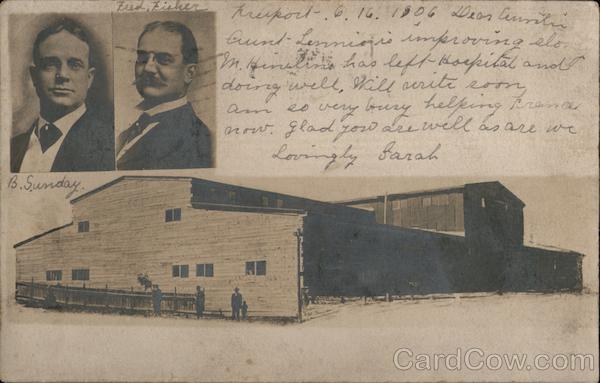 Fred, Fisher
Freeport. 6.16.1906 Dear
Aunt Lennie is improving slo
M. has left Hospital and
doing well, Will write soon
am so very busy helping
now. Glad you are well as are we
Lovingly Sarah
B. Sunday.
CardCow.com